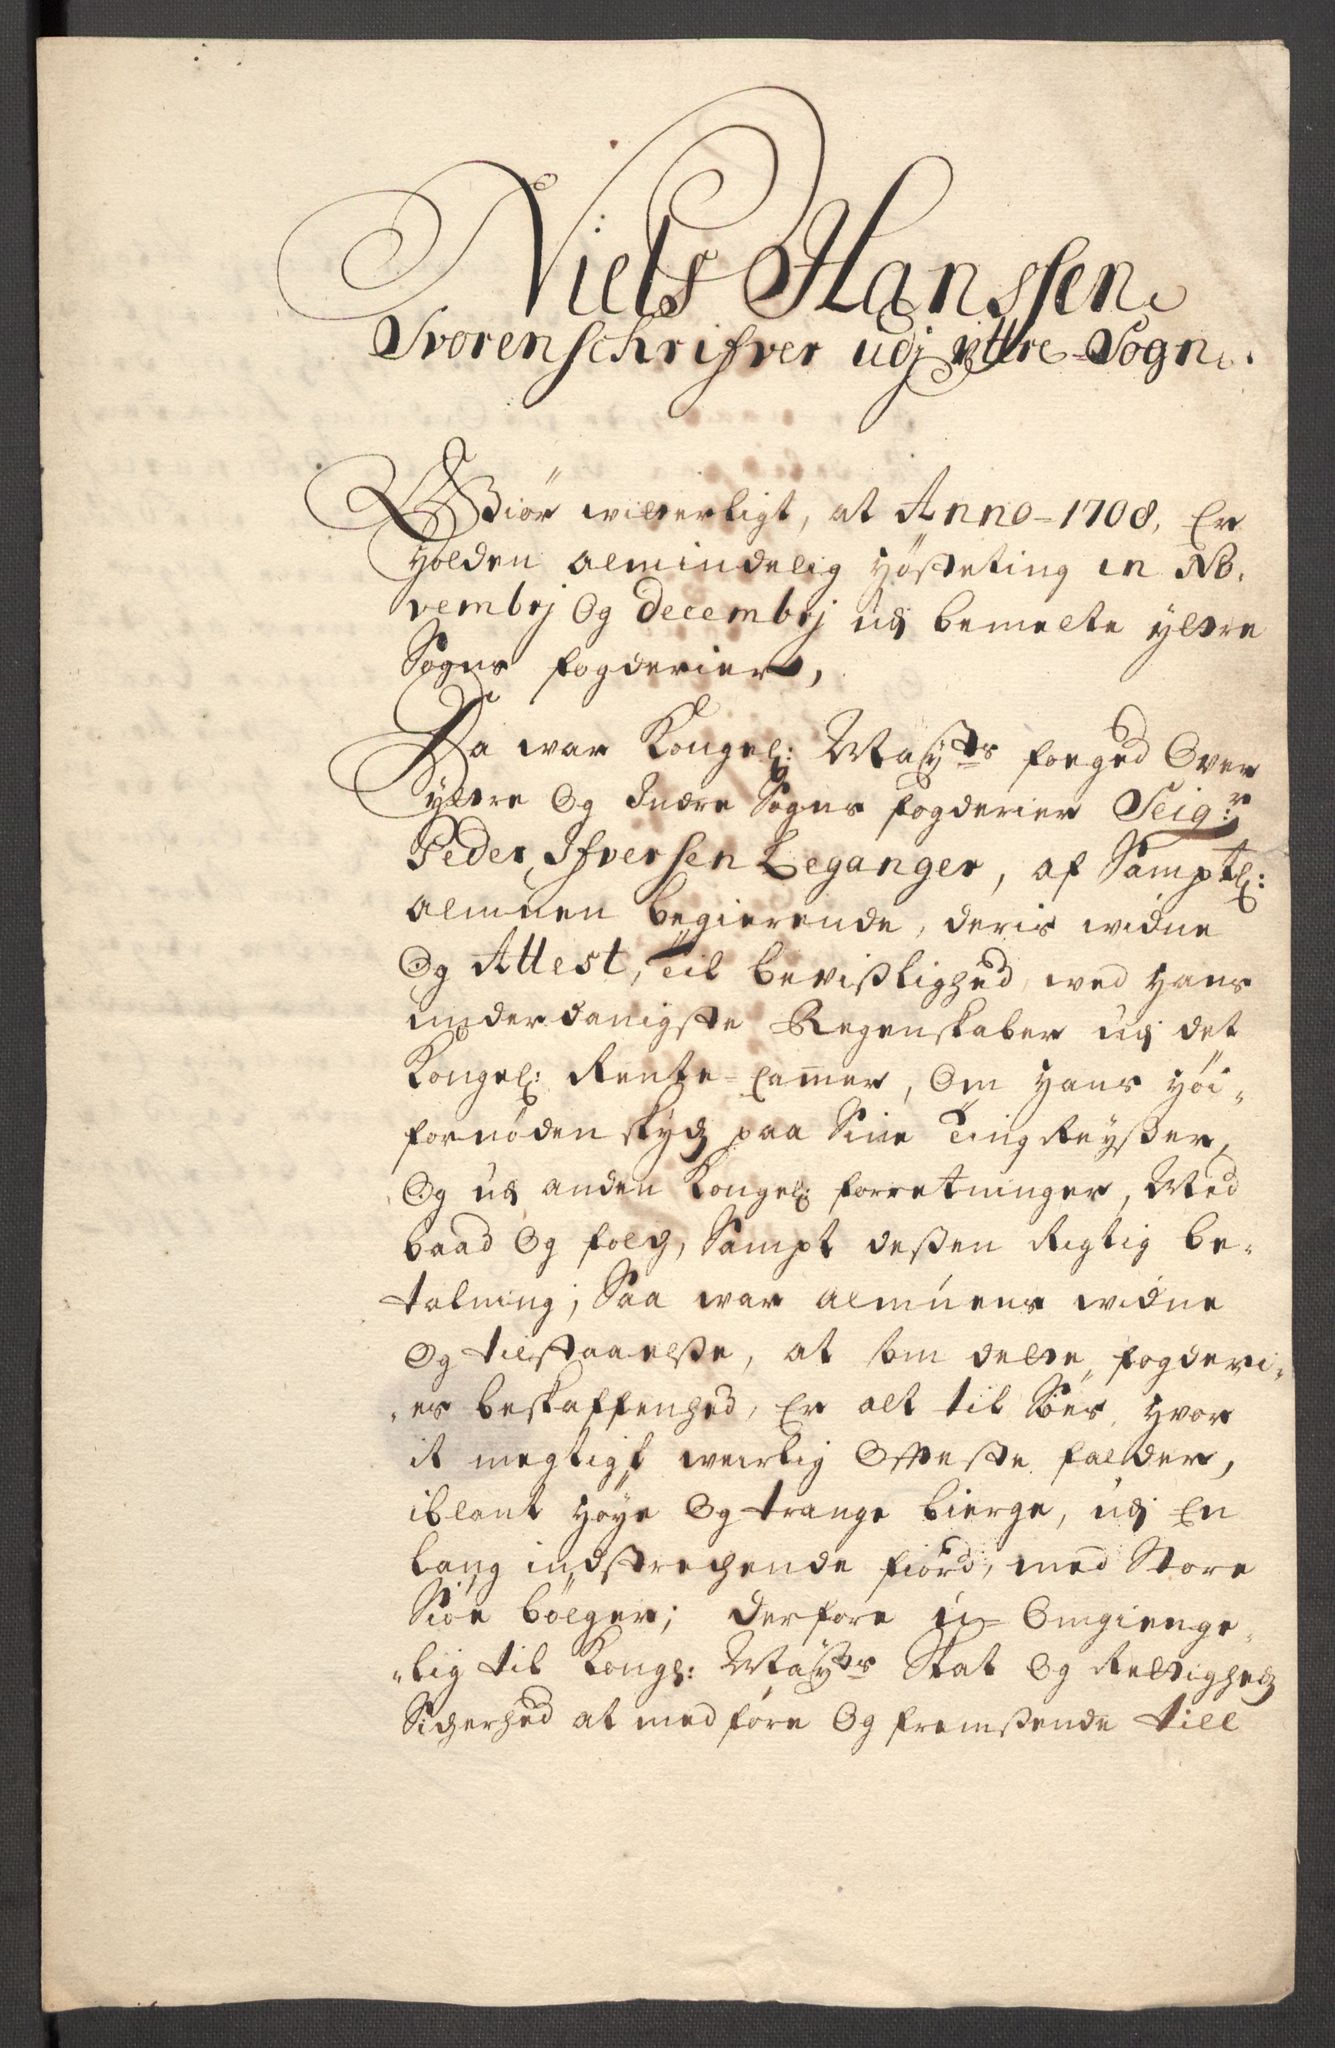 Niels Hanssen
Svorenschrifver udj yttre-Sogn.
Giör witterligt, at Anno-1708, Er
holden almindelig höste ting in No-
vembrj Og Decembrj udj bemelte yttre
Sogns fogderier,
Da war Kongel: Maÿts foeged Over
yttre Og Indre Sogns fogderier Seigr:
Peder Ifversen Leganger, af Samptl:
almuen begierende, deris widne
Og Attest, til bevißlighed, wed hans
underdanigste Regenskaber udj det
Kongel: Rente-Camer, Om hans höi-
fornöden skyds paa Sine Ting Reyßer,
Og udj anden Kongel: forretninger, Med
baad Og folch, Sampt deßen Rigtig be-
talning; Saa war almuens widne
Og tilstaaelße, at som dette fogderi-
es beskaffenhed, Er alt til Söes, hvor
it megtigt weirlig Offteste falder,
iblant höye Og trange bierge, udj En
lang indstrechende fiord, med Store
Siöe bölger; derfore u-Omgienge-
lig til Kongl: Maÿts Skat Og Rettigheds
Sicherhed at medföre Og fremßende till